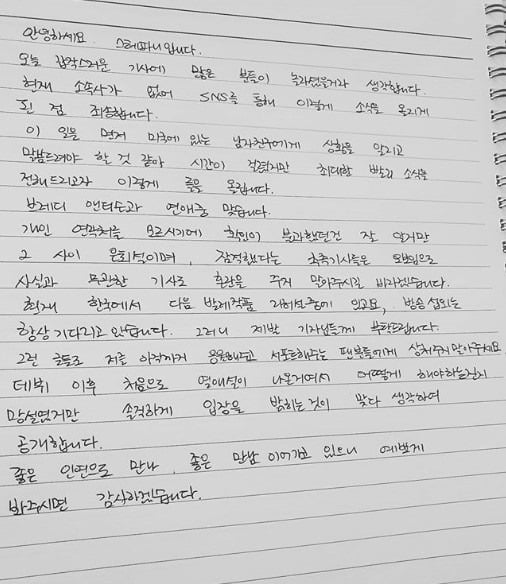 안녕하세요. 스테파니입니다.
오늘 갑작스러운 기사에 많은 분들이 놀라셨을거라 생각합니다.
현재 소속사가 없어 SNS를 통해 이렇게 소식을 올리게
된 점 죄송합니다.
이 일을 먼저 미국에 있는 남자친구에게 상황을 알리고
말씀드려야 할 것 같아 시간이 걸렸지만 최대한 빨리 소식을
전해드리고자 이렇게 글을 올립니다.
브레디 앤더슨과 연애중 맞습니다.
개인 연락처를 모르시기에 확인이 불과했던건 잘 알지만
그 사이 문희성이며, 잠적했다는 추측기사들은
사실과 무관한 기사로 혼란을 주지 말아주시길 바라겠습니다.
현재 한국에서 다음 발레작품 리허설중에 있고요, 방송 섭외는
항상 기다리고 있습니다. 그러니 제발 기자님들께 부탁드립니다.
그런 글들로 저를 아직까지 응원해주고 서포트해주는 팬분들에게 상처주지말아주세요.
데뷔 이후 처음으로 열애설이 나온거여서 어떻게 해야하는건지
망설였지만 솔직하게 입장을 밝히는것이 맞다 생각하여
공개합니다.
좋은 인연으로 만나, 좋은 만남 이어가고 있으니 예쁘게
봐주시면 감사하겠습니다.